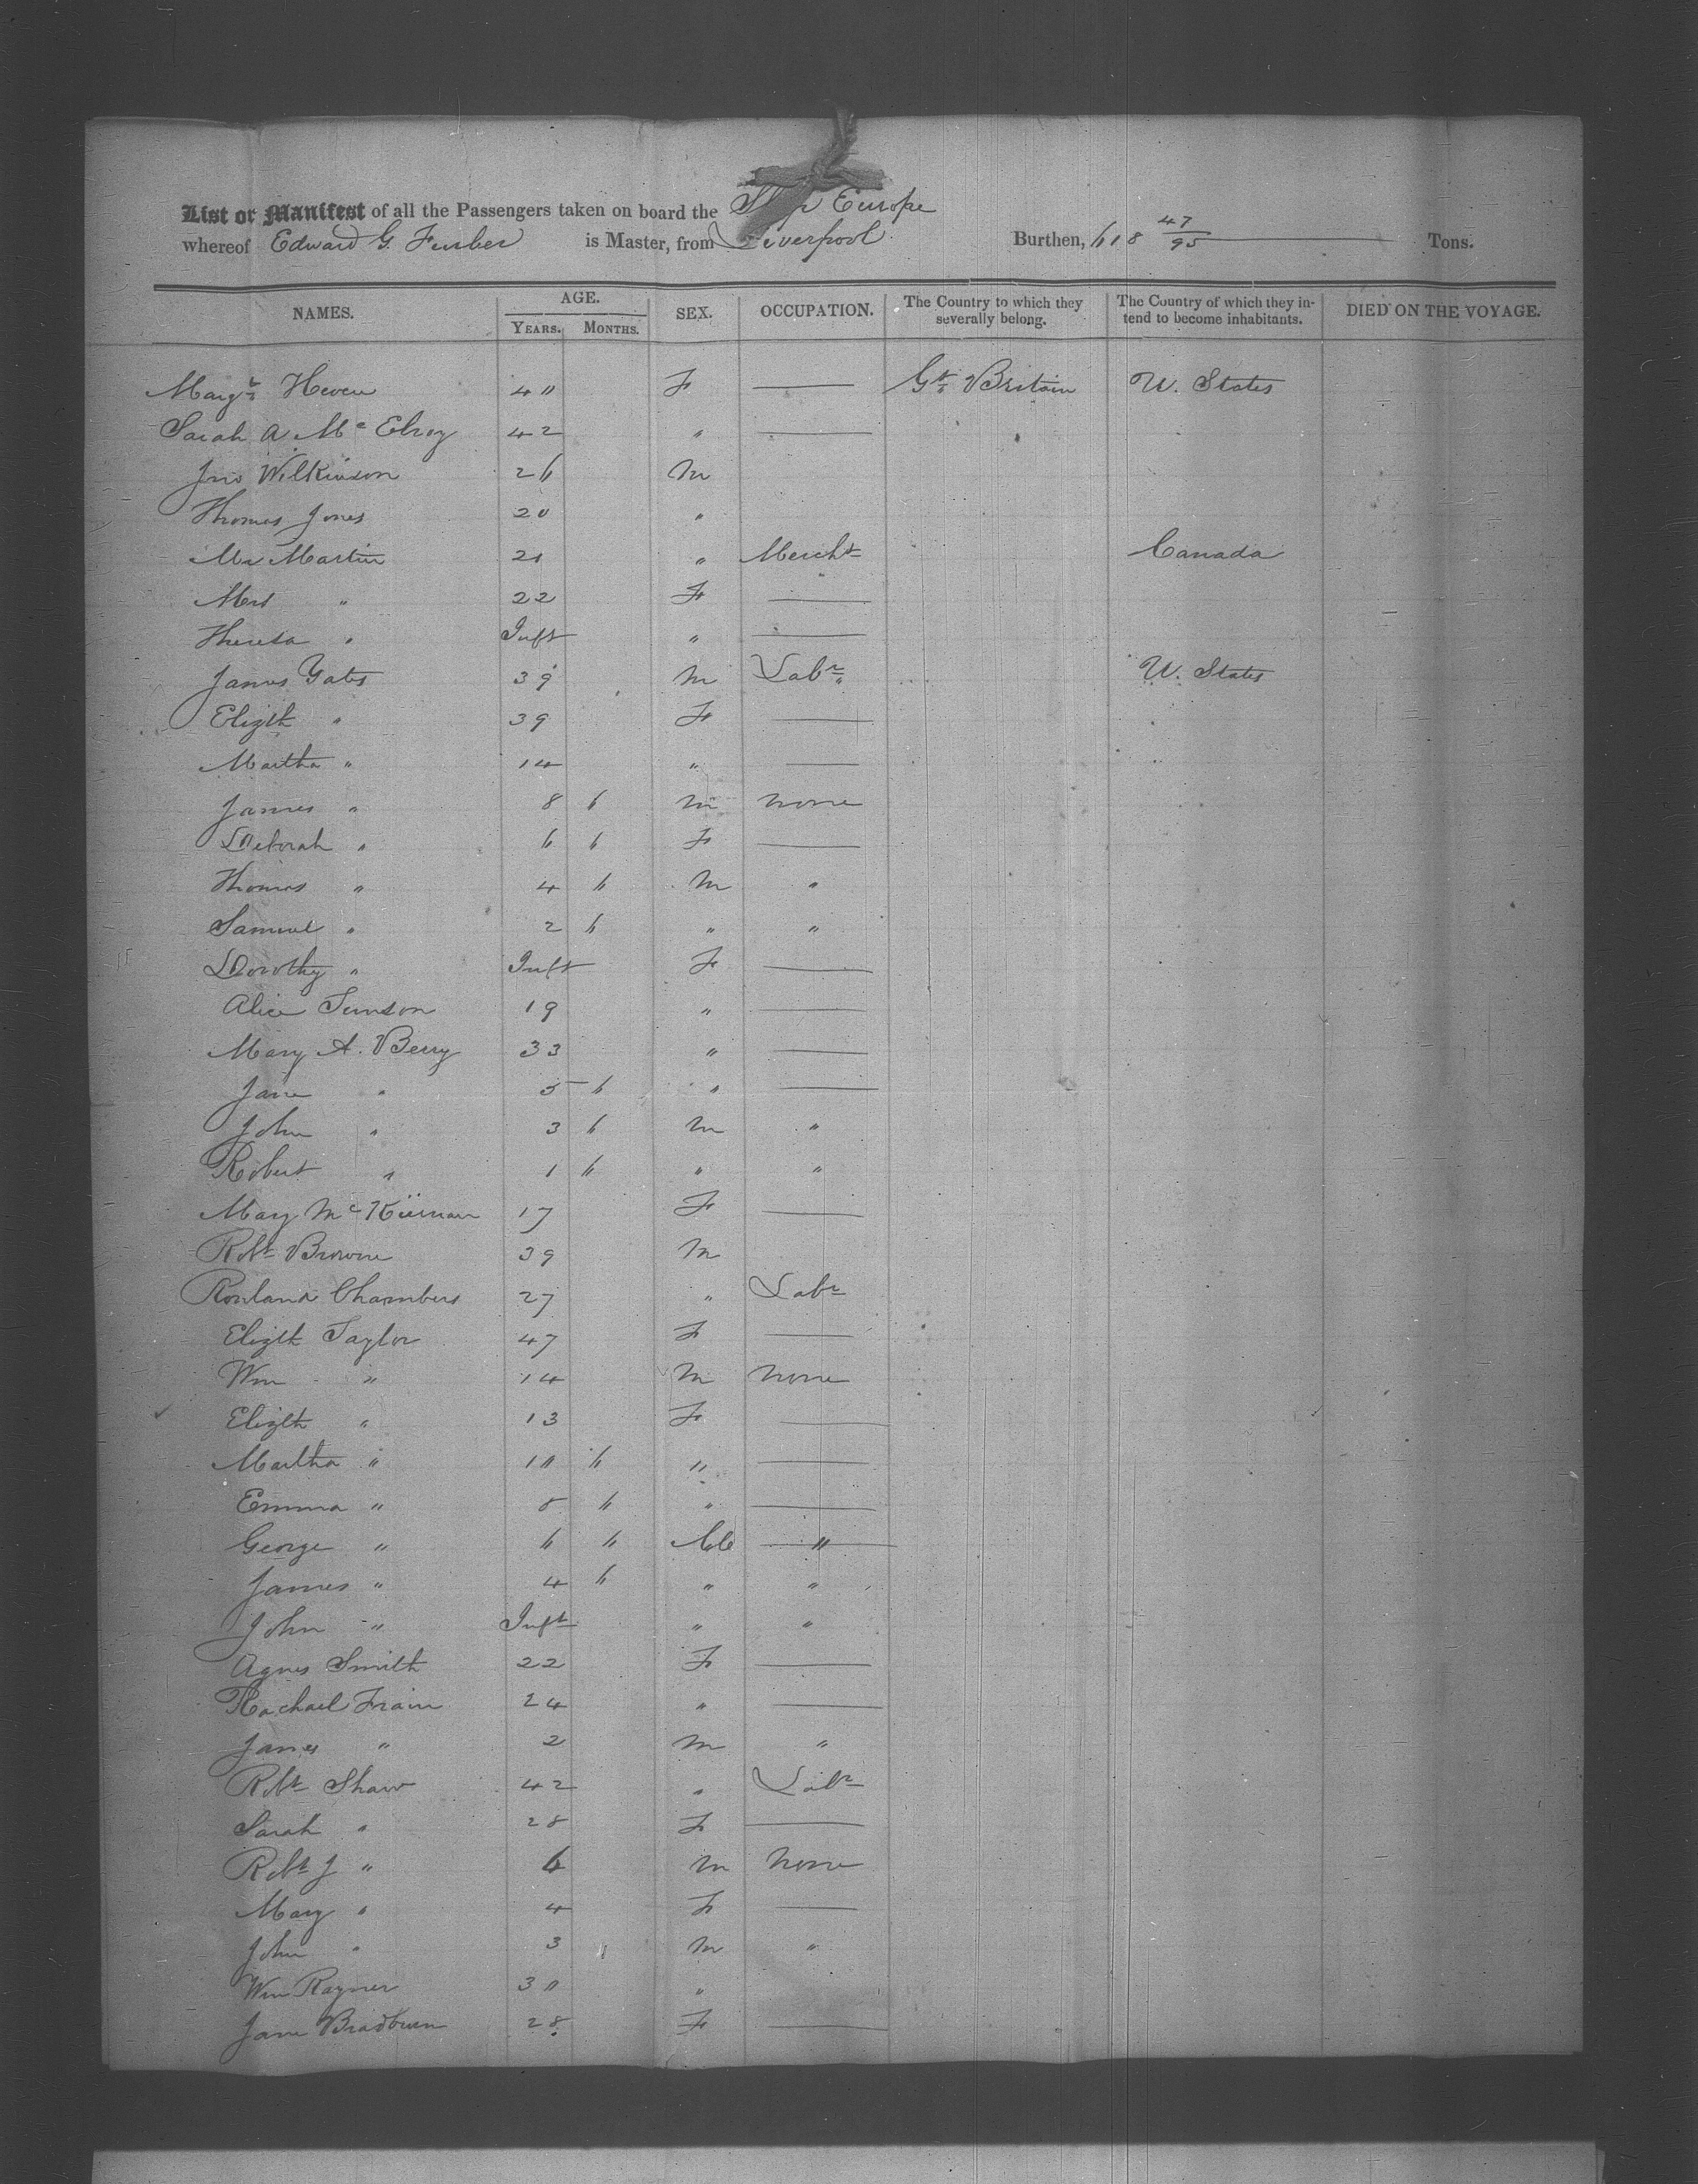 List or Manifest of all the Passengers taken on board the Ship Europe
whereof Edward G. Furber is Master, from Liverpool Burthen, 618 47/95 Tons.
NAMES. AGE. YEARS. MONTHS. SEX. OCCUPATION. The Country to which they severally belong. The Country of which they intend to become inhabitants. DIED ON THE VOYAGE.
Margt 40 F — Gt Britain U. States
Sarah A Mc Elroy 42 " —
Jno Wilkinson 26 M
Thomas Jones 20 "
Mr Martin 21 " Mercht Canada
Mrs " 22 F —
Theresa " Inft " —
James Yates 39 M Labr U. States
Elizth " 39 F —
Martha " 14 " —
James " 8 6 M none
Deborah " 6 6 F —
Thomas " 4 6 M "
Samuel " 2 6 " "
Dorothy " Inft F —
Alice 19 " —
Mary A. Berry 33 " —
Jane " 5 6 " —
John " 3 6 M "
Robert " 1 6 " "
Mary McKiernan 17 F —
Robt Browne 39 M
Rowland Chambers 27 " Labr
Elizth Taylor 47 F —
Wm " 14 M none
Elizth " 13 F —
Martha " 10 6 " —
Emma " 8 6 " —
George " 6 6 M "
James " 4 6 " "
John " Inft " "
Agnes Smith 22 F —
Rachael Frain 24 " —
James " 2 M "
Robt Shaw 42 " Labr
Sarah " 28 F —
Robt J " 6 M none
Mary " 4 F —
John " 3 M "
Wm Rayner 30 "
Jane Bradburn 28 F —